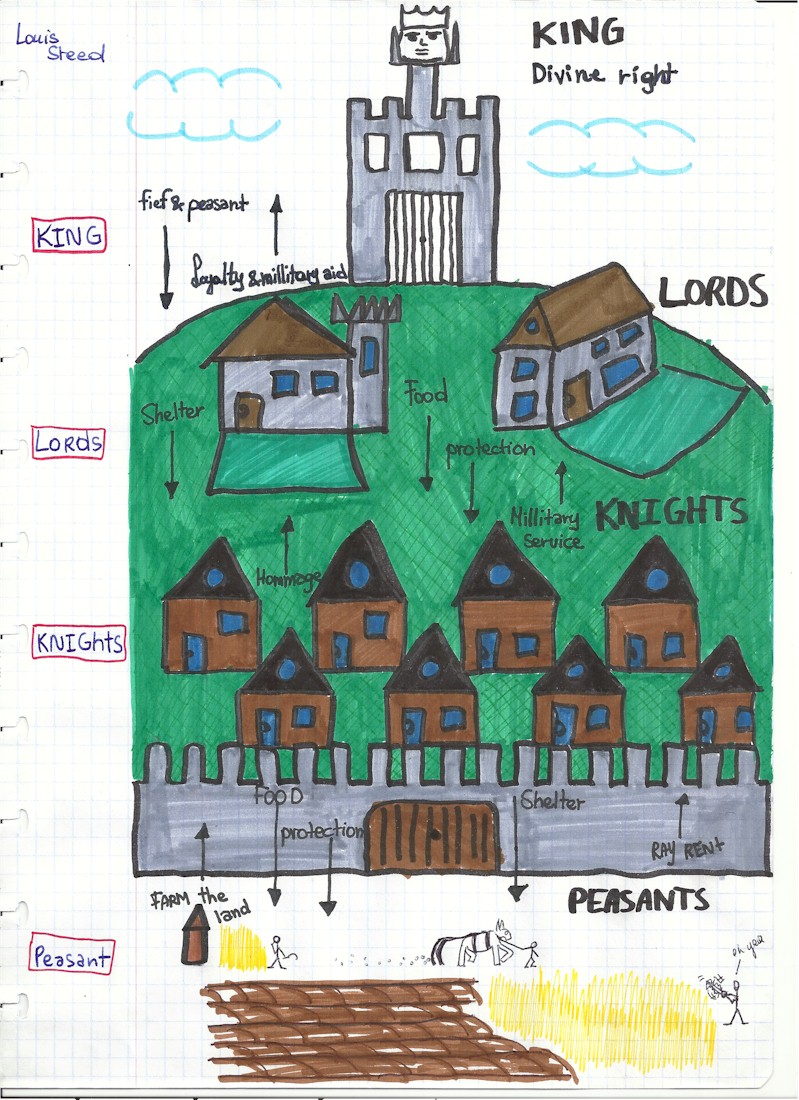 Louis
Steed
KING
Divine right
fief & peasant
KING
Loyalty & millitary aid
LORDS
Shelter
Food
Lords
protection
Millitary
Service
KNIGHTS
Hommage
KNIGHTS
FOOD
Shelter
protection
RAY RENT
FARM the
land
PEASANTS
Peasant
oh year